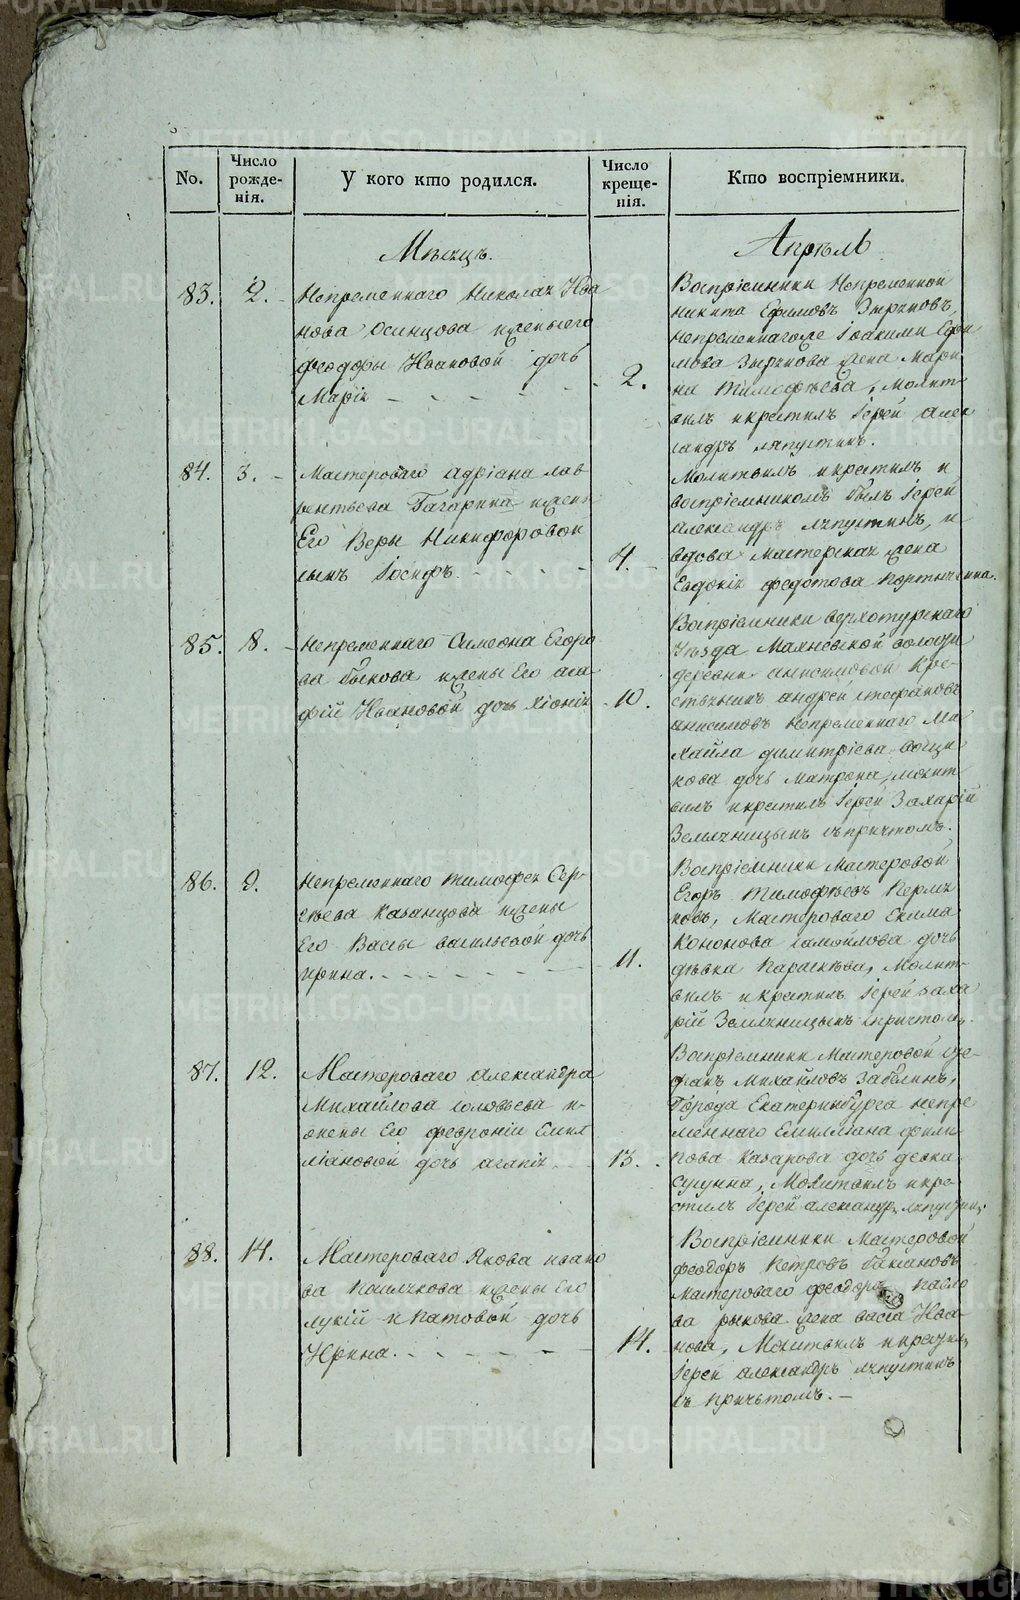 No.
Число рожденія.
У кого кто родился.
Число крещенія.
Кто воспріемники.
Мѣсяцъ.
Апрѣль
83.
2.
Непременнаго Николая Ива
нова Осинцова и жены его
Феодоры Ивановой дочь
Марія
2.
Воспріемники Непременной
Никита Ефимовъ Зыряновъ,
непременнагоже Іоакима Ефи
мова Зырянова жена Мари
на Тимофѣева, Молит-
вилъ и крестилъ Іерей Алек
сандръ Ляпустинъ.
84.
3.
Мастероваго Адріана Лав
рентьева Гагарина и жены
Его Веры Никифоровой
сынъ Іосифъ.
4.
Молитвилъ и крестилъ и
воспріемникомъ былъ Іерей
Александръ Ляпустинъ, и
вдова мастерская жена
Евдокія Федотова
85.
8.
Непременнаго Симеона Егоро
ва Быкова и жены Его Ага
фіи Ивановой дочь Хіонія
10.
Воспріемники Верхотурскаго
Уѣзда Махневской волости
деревни Анисимовой Кре-
стьянинъ Андрей Стефановъ
Анисимовъ Непременнаго Ми
хайла Димитріева
кова дочь Матрона, молит
вилъ и крестилъ Іерей Захарій
Земляницынъ съ причтомъ.
86.
9.
Непременнаго Тимофея Сер-
гѣева Казанцова и жены
Его Вассы Васильевой дочь
Ирина.
11.
Воспріемники Мастеровой
Егоръ Тимофѣевъ Пермя
ковъ, Мастероваго Екима
Кононова Самойлова дочь
дѣвка Параскѣва, Молит-
вилъ и крестилъ Іерей Заха
рій Земляницынъ с причтомъ.
87.
12.
Мастероваго Александра
Михайлова Соловьева и
жены Его Февроніи Емил
ліановой дочь Агапія
13.
Воспріемники Мастеровой Сте-
фанъ Михайловъ Забелинъ,
Города Екатеринбурга непре
меннаго Емилліана Фили-
пова Казарова дочь девка
Сусанна, Молитвилъ и кре-
стилъ Іерей Александръ Ляпустинъ.
88.
14.
Мастероваго Якова Ивано
ва и жены Его
Лукіи дочь
Ирина.
14.
Воспріемники Мастеровой
Феодоръ Петровъ
Мастероваго Феодора Павло
ва Рыкова жена Васса Ива
нова, Молитвилъ и крестилъ
Іерей Александръ Ляпустинъ
съ причьтомъ.